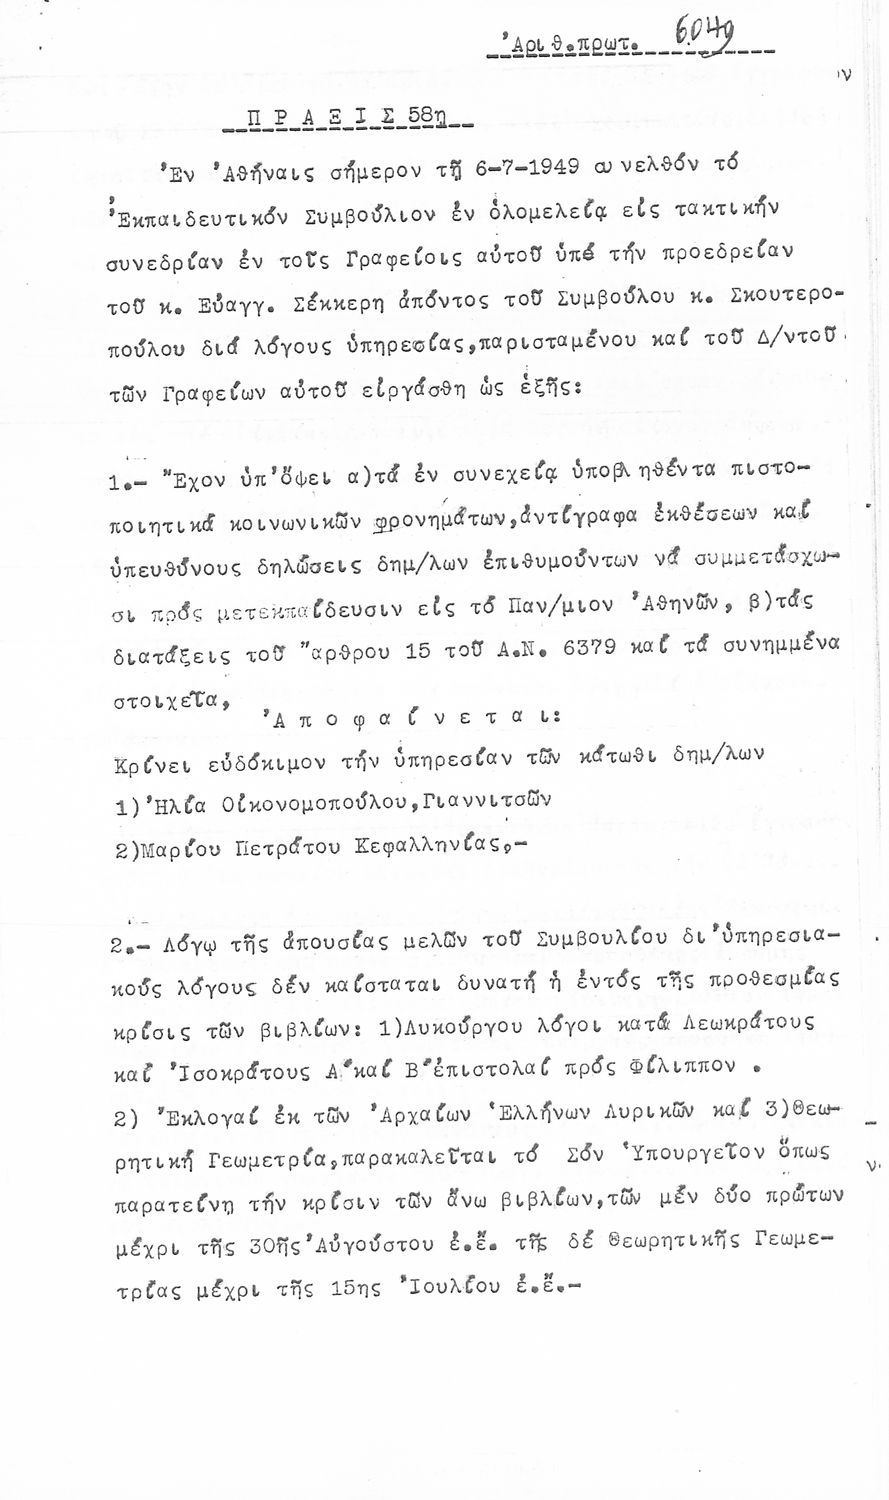 Ἀριθ.πρωτ. 6049
Π Ρ Α Ξ Ι Σ 58η
Ἐν Ἀθήναις σήμερον τῇ 6-7-1949 συνελθόν τό
Ἐκπαιδευτικόν Συμβούλιον ἐν ὁλομελείᾳ εἰς τακτικήν
συνεδρίαν ἐν τοῖς Γραφείοις αὐτοῦ ὑπό τήν προεδρείαν
τοῦ κ. Εὐαγγ. Σέκκερη ἀπόντος τοῦ Συμβούλου κ. Σκουτερο-
πούλου διά λόγους ὑπηρεσίας,παρισταμένου καί τοῦ Δ/ντοῦ
τῶν Γραφείων αὐτοῦ εἰργάσθη ὡς ἑξῆς:
1.- Ἔχον ὑπ'ὄψει α)τά ἐν συνεχείᾳ ὑποβληθέντα πιστο-
ποιητικά κοινωνικῶν φρονημάτων,ἀντίγραφα ἐκθέσεων καί
ὑπευθύνους δηλώσεις δημ/λων ἐπιθυμούντων νά συμμετάσχω-
σι πρός μετεκπαίδευσιν εἰς τό Παν/μιον Ἀθηνῶν, β)τάς
διατάξεις τοῦ ἄρθρου 15 τοῦ Α.Ν. 6379 καί τά συνημμένα
στοιχεῖα,
Ἀ π ο φ α ί ν ε τ α ι:
Κρίνει εὐδόκιμον τήν ὑπηρεσίαν τῶν κάτωθι δημ/λων
1)Ἠλία Οἰκονομοπούλου,Γιαννιτσῶν
2)Μαρίου Πετράτου Κεφαλληνίας,-
2.- Λόγῳ τῆς ἀπουσίας μελῶν τοῦ Συμβουλίου δι'ὑπηρεσια-
κούς λόγους δέν καίσταται δυνατή ἡ ἐντός τῆς προθεσμίας
κρίσις τῶν βιβλίων: 1)Λυκούργου λόγοι κατά Λεωκράτους
καί Ἰσοκράτους Α΄καί Β΄ἐπιστολαί πρός Φίλιππον .
2) Ἐκλογαί ἐκ τῶν Ἀρχαίων Ἑλλήνων Λυρικῶν καί 3)Θεω-
ρητική Γεωμετρία,παρακαλεῖται τό Σόν Ὑπουργεῖον ὅπως
παρατείνη τήν κρίσιν τῶν ἄνω βιβλίων,τῶν μέν δύο πρώτων
μέχρι τῆς 30ῆς Αὐγούστου ἐ.ἔ. τῆς δέ Θεωρητικῆς Γεωμε-
τρίας μέχρι τῆς 15ης Ἰουλίου ἐ.ἔ.-